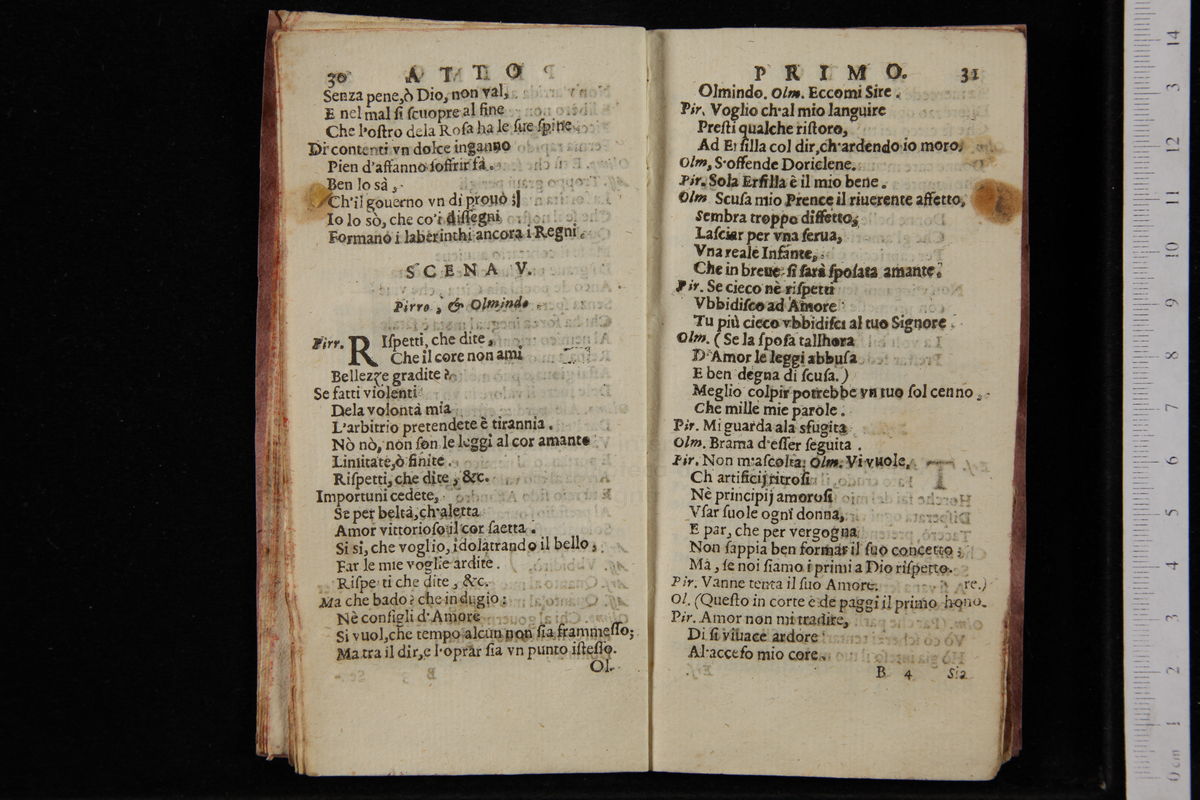 30 ATTO
Senza pene,ò Dio, non val,
E nel mal ſi ſcuopre al fine
Che l'oſtro dela Roſa ha le ſue ſpine
Di contenti vn dolce inganno
Pien d'affanno ſoffrir fà.
Ben lo sà,
Ch'il gouerno vn di prouò;
Io lo sò, che co'i diſſegni
Formano i laberinthi ancora i Regni.
SCENA V.
Pirro, & Olmindo.
Pirr. RIſpetti, che dite,
Che il core non ami
Bellezze gradite?
Se fatti violenti
Dela volontà mia
L'arbitrio pretendete è tirannia.
Nò nò, non ſon le leggi al cor amante
Limitate,ò finite.
Riſpetti, che dite, &c.
Importuni cedete,
Se per beltà,ch'aletta
Amor vittorioſo il cor ſaetta.
Si si, che voglio, idolatrando il bello,
Far le mie voglie ardite.
Riſpe ti che dite, &c.
Ma che bado? che indugio?
Nè conſigli d'Amore
Si vuol,che tempo alcun non ſia frammeſſo;
Ma tra il dir,e l'oprar ſia vn punto iſteſſo.
Ol.
PRIMO. 31
Olmindo. Olm. Eccomi Sire.
Pir. Voglio ch'al mio languire
Preſti qualche riſtoro,
Ad Erſilla col dir,ch'ardendo io moro.
Olm, S'offende Doriclene.
Pir. Sola Erſilla è il mio bene.
Olm Scuſa mio Prence il riuerente affetto,
Sembra troppo diffetto,
Laſciar per vna ſerua,
Vna reale Infante,
Che in breue ſi farà ſpoſata amante.
Pir. Se cieco nè riſpetti
Vbbidiſco ad Amore
Tu più cieco vbbidiſci al tuo Signore.
Olm. (Se la ſpoſa tallhora
D'Amor le leggi abbuſa
E ben degna di ſcuſa.)
Meglio colpir potrebbe vn tuo ſol cenno,
Che mille mie parole.
Pir. Mi guarda ala sfugita
Olm. Brama d'eſſer ſeguita.
Pir. Non m'aſcolta. Olm. Vi vuole.
Ch artificij ritroſi
Nè principij amoroſi
Vſar ſuole ogni donna,
E par, che per vergogna
Non ſappia ben formar il ſuo concetto;
Mà, ſe noi ſiamo i primi a Dio riſpetto.
Pir. Vanne tenta il ſuo Amore. re.)
Ol. (Queſto in corte è de paggi il primo hono-
Pir. Amor non mi tradire,
Di ſi viuace ardore
Al'acceſo mio core.
B 4 Sia